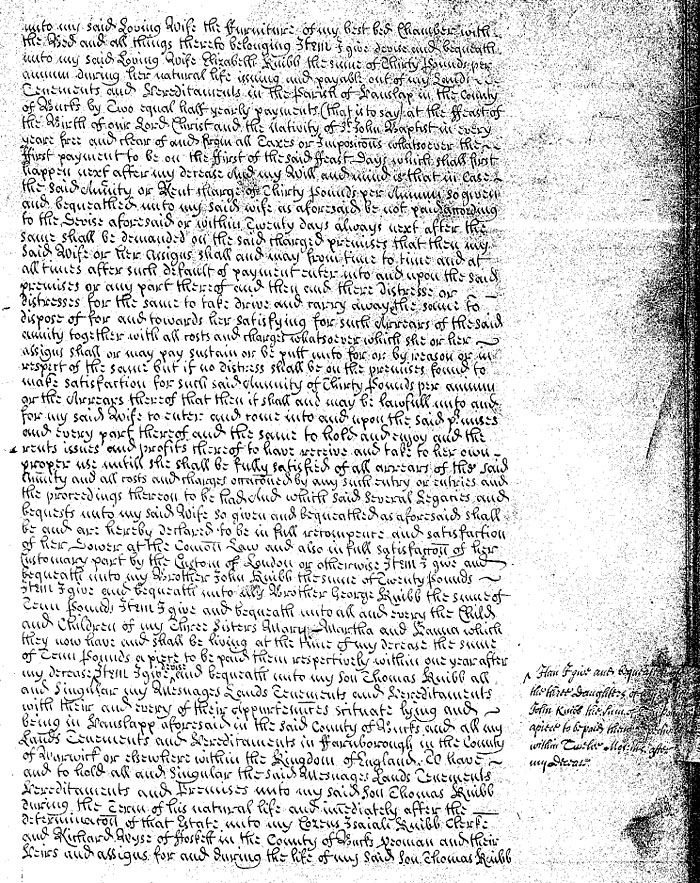 unto my said Loving Wife the ffurniture of my best bed Chamber with
the Bed and all things thereto belonging Item I give devise and bequeath
unto my said Loving Wife Elizabeth Knibb the sume of Thirty Pounds per
annum during her natural life issuing and payable out of my Lands
Tenements and Hereditaments in the Parish of Hanslap in the County
of Bucks by Two equal half yearly payments (that is to say) at the ffeast of
the Birth of our Lord Christ and the nativity of St John Baptist in every
yeare free and clear of and from all Taxes or Imposicons whatsoever the
ffirst payment to be on the ffirst of the said ffeast Days which shall first
happen next after my decease And my Will and mind is that in Case
the said Annuity or Rent charge of Thirty Pounds per Annum so given
and bequeathed unto my said wife as aforesaid be not paid according
to the Devise aforesaid or within Twenty days always next after the
same shall be demanded on the said charged premises that then my
said Wife or her assigns shall and may from time to time and at
all times after such default of payment enter into and upon the said
premises or any part thereof and then and there distresse or
distresses for the same to take drive and carry away the same to
dispose of for and towards her satisfying for such Arrears of the said
anuity together with all costs and charges whatsoever which she or her
assigns shall or may pay sustain or be putt unto for or by reason or in
respect of the same but if no distress shall be on the premises found to
make satisfaction for such said Annuity of Thirty Pounds per annum
or the Arrears thereof that then it shall and may be lawfull unto and
for my said Wife to enter and come into and upon the said p'mises
and every part thereof and the same to hold and enjoy and the
rents issues and profits thereof to have receive and take to her own
proper use untill she shall be fully satisfied of all arrears of the said
Anuity and all costs and charges occasioned by any such entry or entries and
the proceedings thereon to be had And which said several Legacies and
bequests unto my said Wife so given and bequeathed as aforesaid shall
be and are hereby declared to be in full recompence and satisfaction
of her Dower at the Comon Law and also in full satisfaccon of her
customary part by the Custom of London or otherwise Item I give and
bequeath unto my Brother John Knibb the sume of Twenty Pounds
Item I give and bequeath unto My Brother George Knibb the sume of
Tenn Pounds Item I give and bequeath unto all and every the Child
and Children of my Three Sisters Mary Martha and Hanna which
they now have and shall be living at the time of my decease the sume
of Tenn Pounds a piece to be paid them respectively within one year after
my decease Item I give devise and bequeath unto my Son Thomas Knibb all
and Singular my Messuages Lands Tenements and Hereditaments
with their and every of their appurtenances scituate lying and
being in Hanslapp aforesaid in the said County of Bucks and all my
Lands Tenements and Hereditaments in ffarnborough in the County
of Warwick or elsewhere within the Kingdom of England To have
and to hold all and Singular the said Messuages Lands Tenements
Hereditaments and Premises unto my said Son Thomas Knibb
during the Term of his natural life and imediately after the
determinacon of that Estate unto my Cozens Isaiah Knibb Clerke
and Richard Wyse of in the County of Bucks Yeoman and their
Heirs and assigns for and during the life of my said Son Thomas Knibb
Item I give and bequeath
the three Daughters of
John Knibb the sume of
apiece to be paid them
within Twelve Months after
my Decease